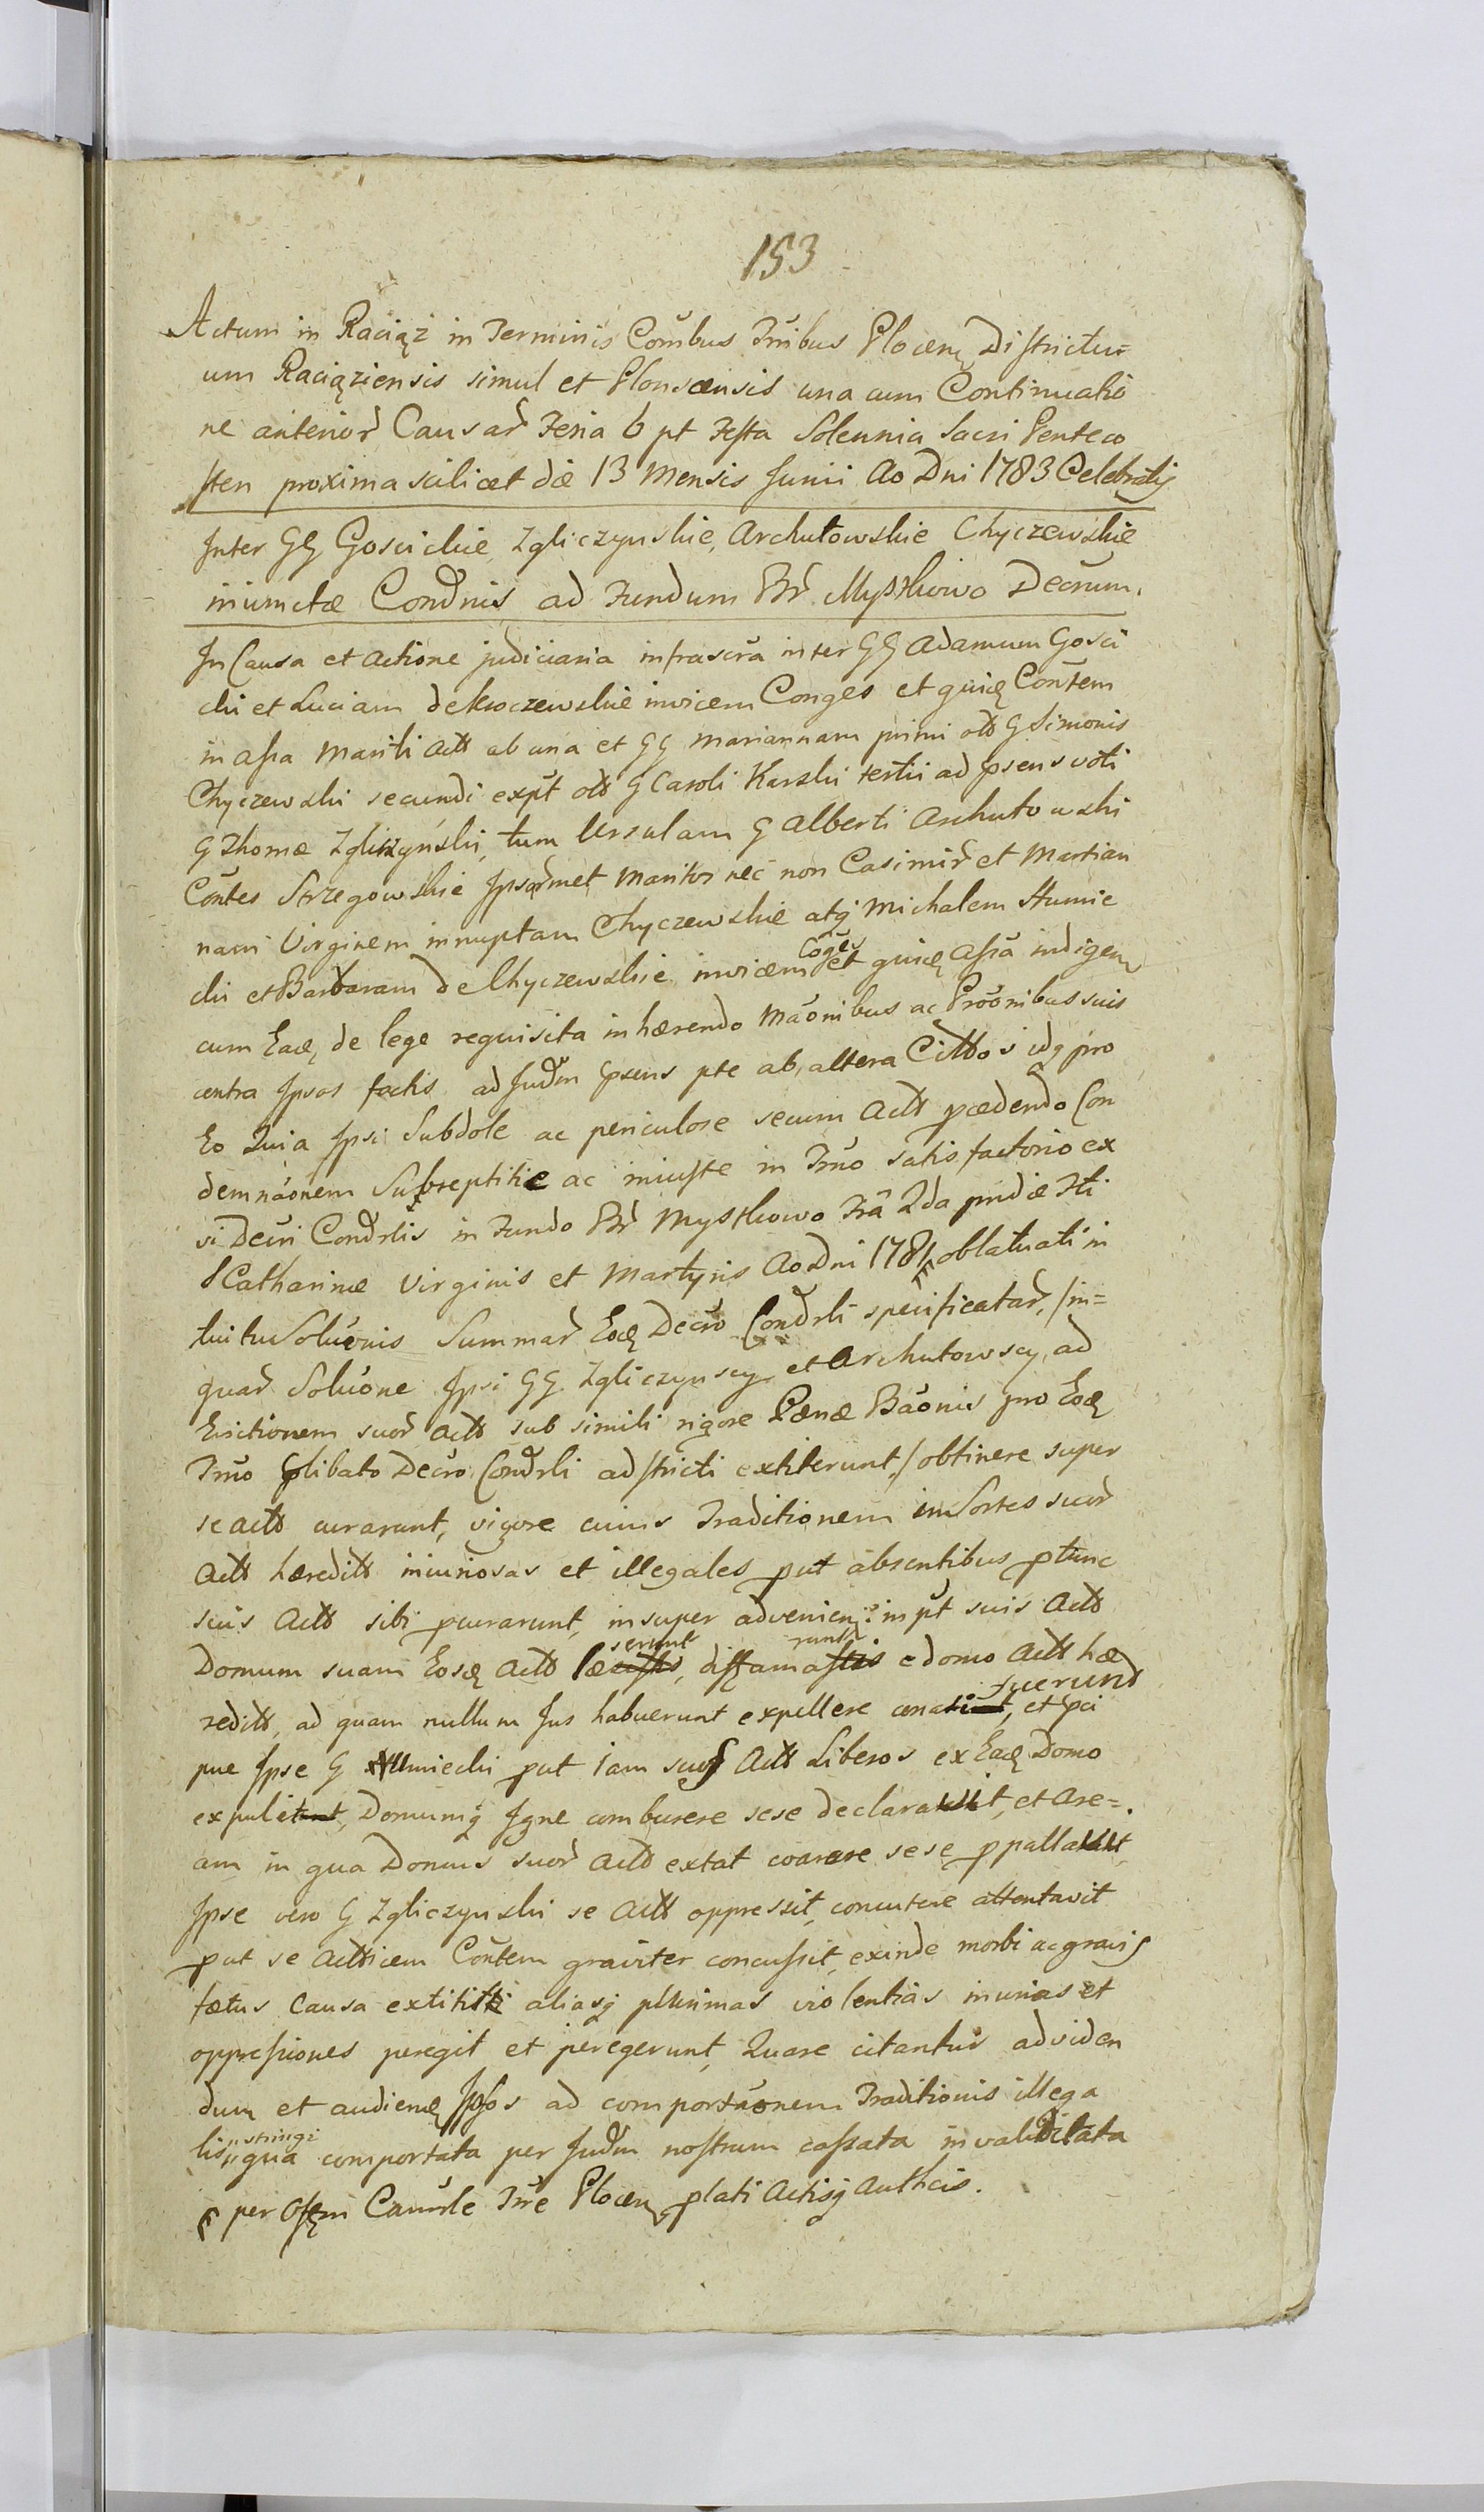 153
Actum in Raciąż in Terminis Coñbus Trñibus Plocen Districtu=
um Raciąziensis simul et Plonscensis una cum Continuatio
ne anterior Causar Feria 6 pt Festa Solennia Sacri Penteco
sten proxima scilicet die 13 Mensis Junii Ao Dni 1783 Celebratis
Inter GG Goscickie, Zgliczynskie, Archutowskie Chyczewskie
iniunctæ Condnis ad Fundum Br Mystkowo Decrum.
In Causa et Actione judiciaria infrascra inter GG Adamum Gosci
cki et Luciam de Kroczewskie invicem Conges et quidę Contem
in Assa Mariti Actt ab una et GG Mariannam primi ott G Simonis
Chyczewski secundi expt ott G Caroli Karski tertii ad psens voti
G Thomæ Zgliczynski, tum Ursulam G Alberti Archutowski
Contes Strzegowskie Ipsarmet Maritor nec non Casimir et Martian
nam Virginem innuptam Chyczewskie atq Michalem Humie
cki et Barbaram de Chyczewskie invicem Coges et quidę Assa indigen
cum Eadę, de lege requisita inhærendo Maonibus ac Proonibus suis
contra Ipsos factis ad Judm Psens pte ab, altera Cittos idq pro
Eo Quia Ipsi Subdole ac periculose secum Actt pcedendo Con
demnaonem Subreptitie ac iniuste in Trno satisfactorio ex
vi Decri Condrlis in Fundo Br Mystkowo Fra 2da pridie Fti
S Catharinæ Virginis et Martyris Ao Dni 1781 oblatuati in
tuitu Soluonis Summar Eodę Decro Condrli specificatar, /in=
quar Soluone Ipsi GG Zgliczynscy et Archutowscy, ad
Evictionem suor Actt sub simili rigore Pænæ Baonis pro Eodę
Trno Plibato Decro Condrli adstricti extiterunt,/ obtinere super
se Actt curarunt, vigore cuius Traditionem in Sortes suor
Actt hæreditt iniuriosas et illegales put absentibus ptunc
suis Actt sibi pcurarunt, insuper advenien: in pt suis Actt
serunt runt
Domum suam Eosdę Actt læ, diffama e domo Actt hæ
fuerunt
reditt, ad quam nullum Jus habuerunt expellere conati, et pci
pue Ipse G Humiecki put iam suos Actt Liberos ex Eadę Domo
expulit, Domumq Igne comburere sese declaravit, et Are=
am in qua Domus suor Actt extat coarare sese ppallavit
Ipse vero G Zgliczynski se Actt oppressit, concutere attentavit
put se Actticem Contem graviter concussit, exinde morbi ac gravis
fœtus Causa extitit aliasq plurimas violentias iniurias et
oppressiones peregit et peregerunt, Quare citantur ad viden
dum et audiendę Ipsos ad comportaonem Traditionis illega
stringi
lis, qua comportata per Judm nostrum cassata invaliditata
per Offm Canrle Trre Plocen plati Actisq Authcis.